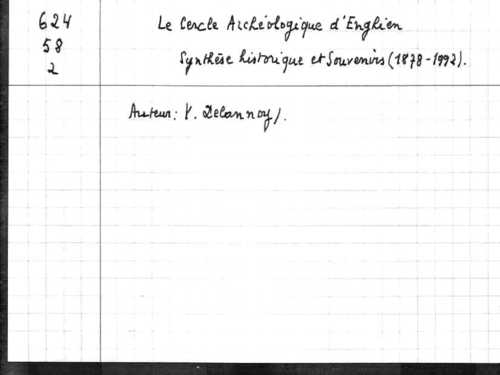 624 Le Cercle Archéologique d'Enghien
58 Synthèse historique et Souvenirs (1878-1992).
2
Auteur: Y. Delannoy/.